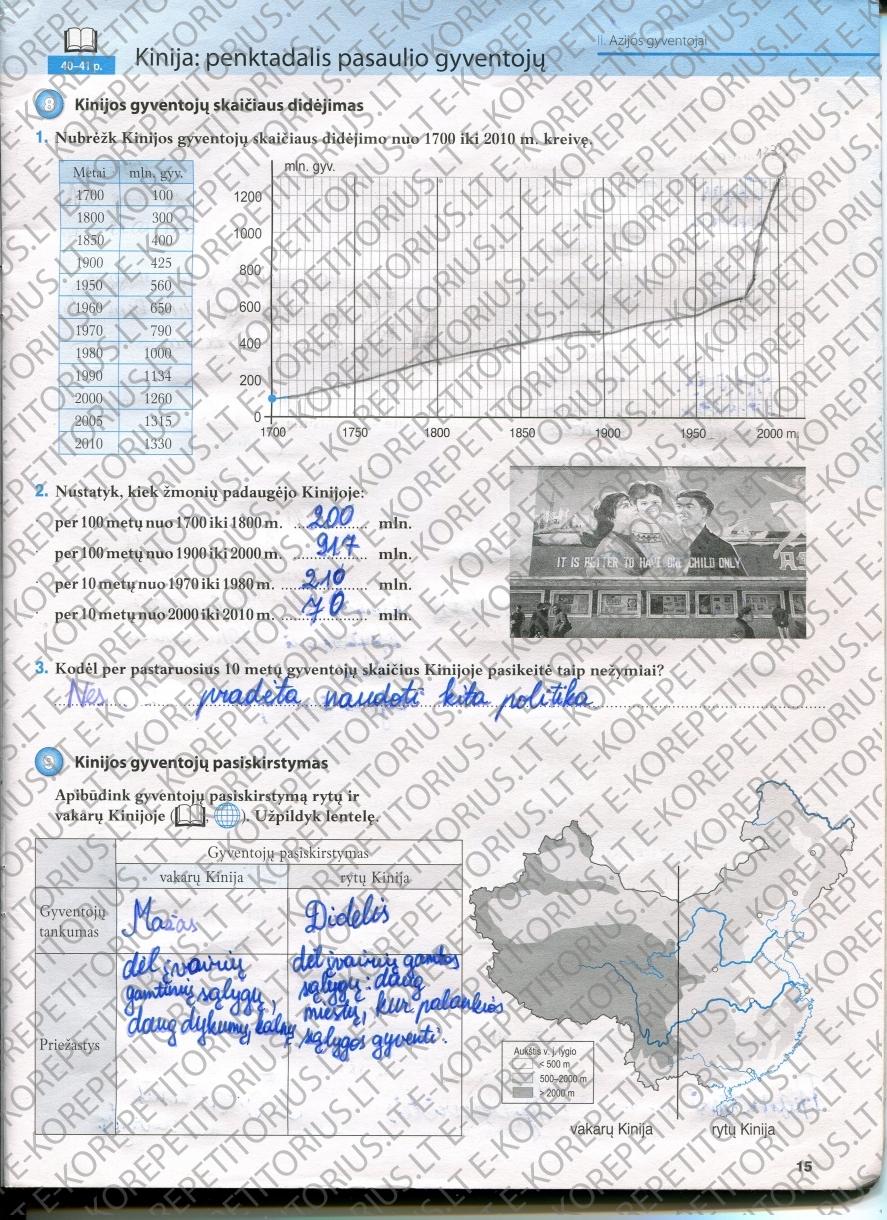 40–41 p.
Kinija: penktadalis pasaulio gyventojų
II. Azijos gyventojai
8 Kinijos gyventojų skaičiaus didėjimas
1. Nubrėžk Kinijos gyventojų skaičiaus didėjimo nuo 1700 iki 2010 m. kreivę.
Metai mln. gyv.
1700 100
1800 300
1850 400
1900 425
1950 560
1960 650
1970 790
1980 1000
1990 1134
2000 1260
2005 1315
2010 1330
mln. gyv.
1200
1000
800
600
400
200
0
1700 1750 1800 1850 1900 1950 2000 m.
2. Nustatyk, kiek žmonių padaugėjo Kinijoje:
per 100 metų nuo 1700 iki 1800 m. 200 mln.
per 100 metų nuo 1900 iki 2000 m. 917 mln.
per 10 metų nuo 1970 iki 1980 m. 210 mln.
per 10 metų nuo 2000 iki 2010 m. 70 mln.
IT IS BETTER TO HAVE ONE CHILD ONLY
3. Kodėl per pastaruosius 10 metų gyventojų skaičius Kinijoje pasikeitė taip nežymiai?
Nes pradėta naudoti kita politika
9 Kinijos gyventojų pasiskirstymas
Apibūdink gyventojų pasiskirstymą rytų ir
vakarų Kinijoje ( , ). Užpildyk lentelę.
Gyventojų pasiskirstymas
vakarų Kinija rytų Kinija
Gyventojų
tankumas
Mažas
Didelis
Priežastys
dėl įvairių
gamtinių sąlygų,
daug dykumų, kalnų
dėl įvairių gamtos
sąlygų: daug
miestų, kur palankios
sąlygos gyventi.
Aukštis v. j. lygio
< 500 m
500–2000 m
> 2000 m
vakarų Kinija rytų Kinija
15
E-KOREPETITORIUS.LT